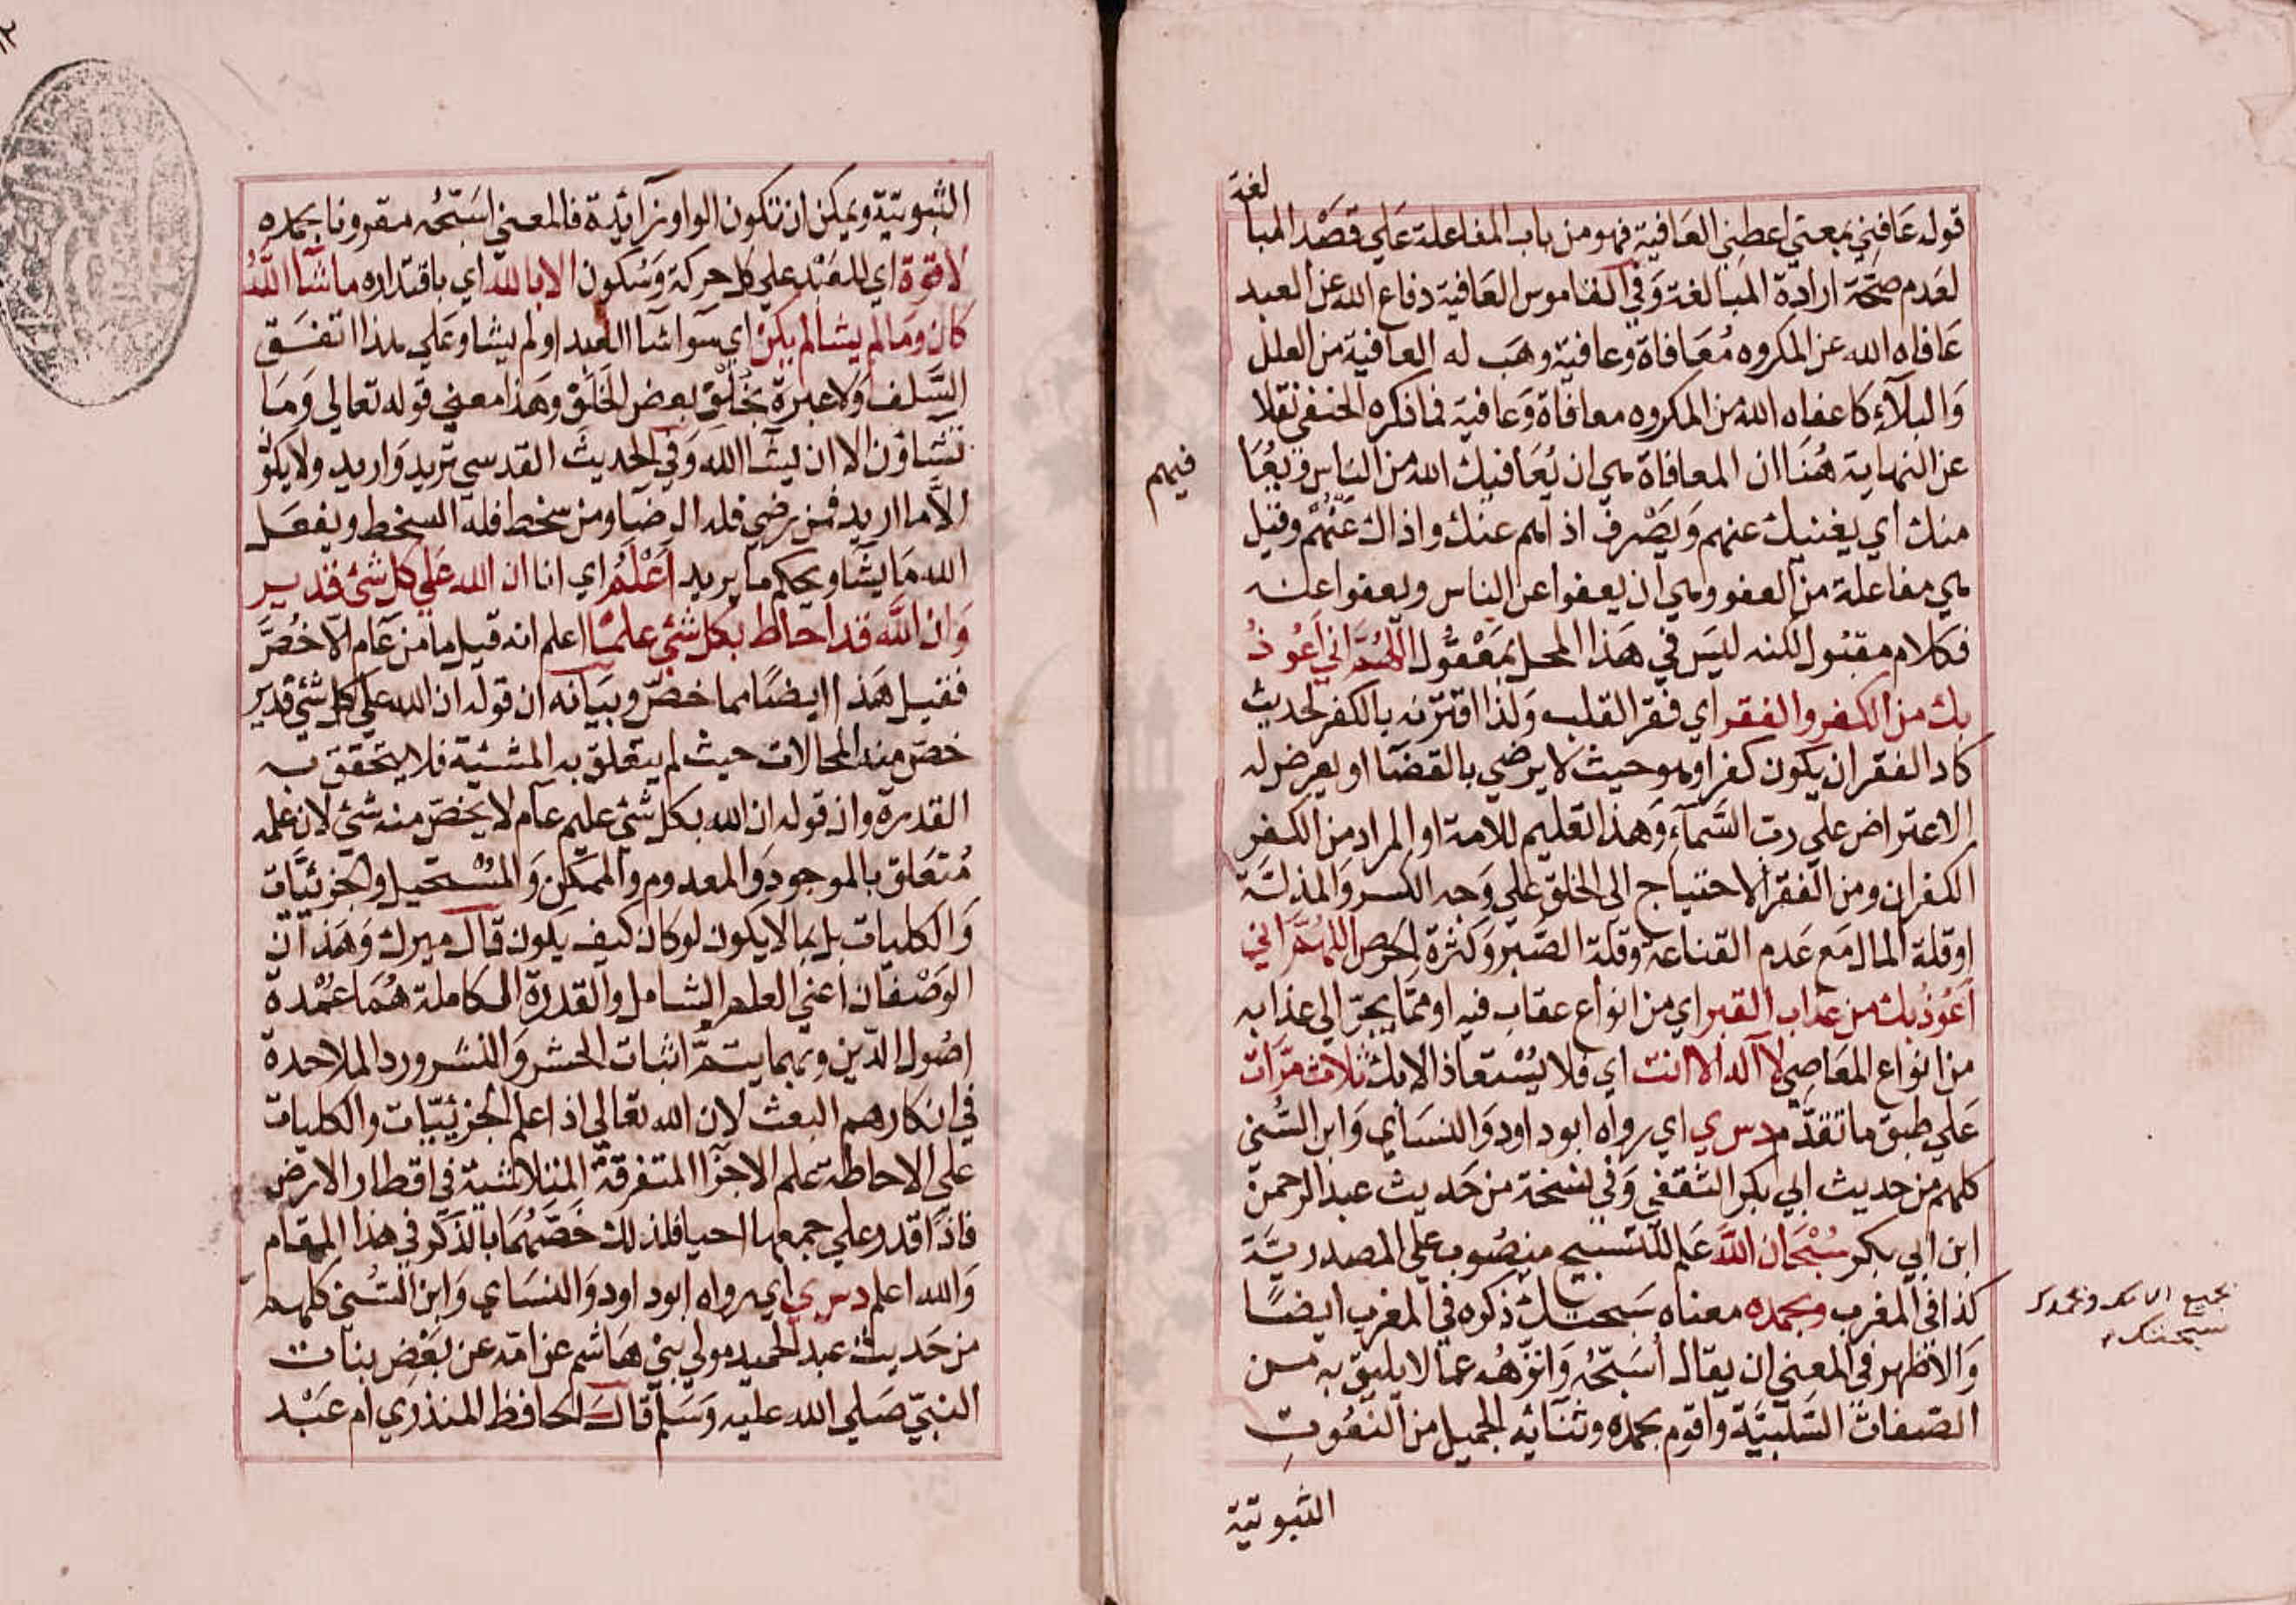 لغة
قوله عَافِنِي بمعني اعطني العَافية فهو من باب المفاعلة عَلي قصْد المبا
لعَدم صحّة ارادة المبالغة وَفي القاموس العَافية دفاع الله عن العبد
عَافاه الله عن المكروه مُعَافاة وعافية وهَب له العافية من العلل
وَالبلآء كاعفاه الله من المكروه معافاة وَعافية فما ذكره الحنفي نقلا
عن النهاية هُنَا ان المعافاة هي ان يُعَافيك الله من الناس وَيُعَا
فيهم
منك اي يغنيك عنهم وَيَصْرف اذاهم عنك واذاك عَنْهُمْ وقيل
هي مفاعلة من العفو وهي ان يعفوا عن الناس ويعفوا عنه
فكلام مقبُول لكنه ليسَ في هَذا المحل بمَعْقُول اللّهُمَّ اني اَعُوذُ
بك من الكفر والفقر اي فقر القلب وَلذا اقترنه بالكفر لحديث
كاد الفقر ان يكون كفرا وهو حيث لا يرضي بالقضَا او يعرض له
الاعتراض علي رب السَّمآء وَهذا تعليم للامة او المراد من الكفر
الكفران ومن الفقر الاحتياج الي الخلق علي وَجه الكسر وَالمذلّة
او قلة المال مَع عَدم القناعة وقلة الصَّبر وَكثرة الحرص اللهُمَّ اني
اَعُوذُ بك من عذاب القبر اي من انواع عقاب فيه او ممّا يجرّ الي عذابه
من انواع المعَاصِي لا اله الا انت اي فلا يُسْتعاذ الا بك ثلاث مرّات
عَلي طبق ما تقدّم دس ي اي رواه ابوداود وَالنسَاي وَابن السُّني
كلهم من حديث ابي بكر الثقفي وَفي نسخة من حَديث عبد الرحمن
ابن ابي بكر سُبْحَان اللّه عَلم للتسبيح منصُوب علي المصدريَّة
كذا في المغرب وبحمده معناه سَبحتك ذكره في المغرب ايضًا
وبحمدك
سبحتك
وَالاظهر في المعني ان يقال اُسَبّحُه وَانزّهُه عما لا يليق به من
الصّفات السَّلبيَّة واقوم بحمده وثنائه الجميل من النعُوتِ
الثبوتية
الثبوتيّة ويمكن ان تكون الواو زآئدة فالمعني اسَبّحُه مقرونا بحمده
لا قوّة اي للعَبْد علي كل حركة وَسُكون الا بالله اي باقتداره ما شآا اللّهُ
كان وَمَا لم يشا لم يكنْ اي سَوا شآا العَبد او لم يشا وعَلي هذا اتفسَق
السَّلف وَلا عبرَة بخُلْقِ بعض الخَلقْ وهَذا معني قوله تعالي وَمَا
تشَاؤن الا ان يشَا الله وَفي الحديث القدسي تريد وَاريد ولا يكون
الاّ ما اريد فمن رضي فله الرضَا ومن سخط فله السخط ويفعَل
الله مَا يشَا ويحكم ما يريد اَعْلَمُ اي انا ان الله عَلي كل شئ قدير
وَان اللّه قد احاط بكل شئ علمًا اعلم انه قيل ما من عَام الاّ خُصّ
فقيل هَذا ايضًا مما خصّ وبيَانه ان قوله ان الله علي كل شئ قدير
خصّ منه المحالات حيث لم يتعلق به المشئية فلا يتحقق به
القدرة وان قوله ان الله بكل شئ عليم عام لا يخصّ منه شئ لان علمه
مُتعَلق بالموجود وَالمعدوم والممكن وَالمسْتحيل والجزئيّات
وَالكليات بل بما لا يكون لو كان كيف يكون قال ميرك وَهَذان
الوَصْفان اعني العلم الشامل والقدرة الكاملة هُمَا عمْدة
اصُول الدّين وبهما يتمُّ اثبات الحشر وَالنشر ورد الملاحدة
في انكارهم البعث لان الله تعالي اذا علم الجزئيّات والكليات
علي الاحاطة علم الاجزا المتفرقة المتلاشية في اقطار الارض
فاذا قدر علي جمعها احيا فلذلك خَصَّهُمَا بالذكر في هذا المقام
وَالله اعلم دس ي اي رواه ابوداود وَالنسَاي وَابن السُّني كلهم
من حَديث عبد الحميد مولي بنيْ هَاشم عن امّه عن بَعْض بنات
النبيّ صَلي الله عليه وَسَلم قال الحافظ المنذري ام عَبْد